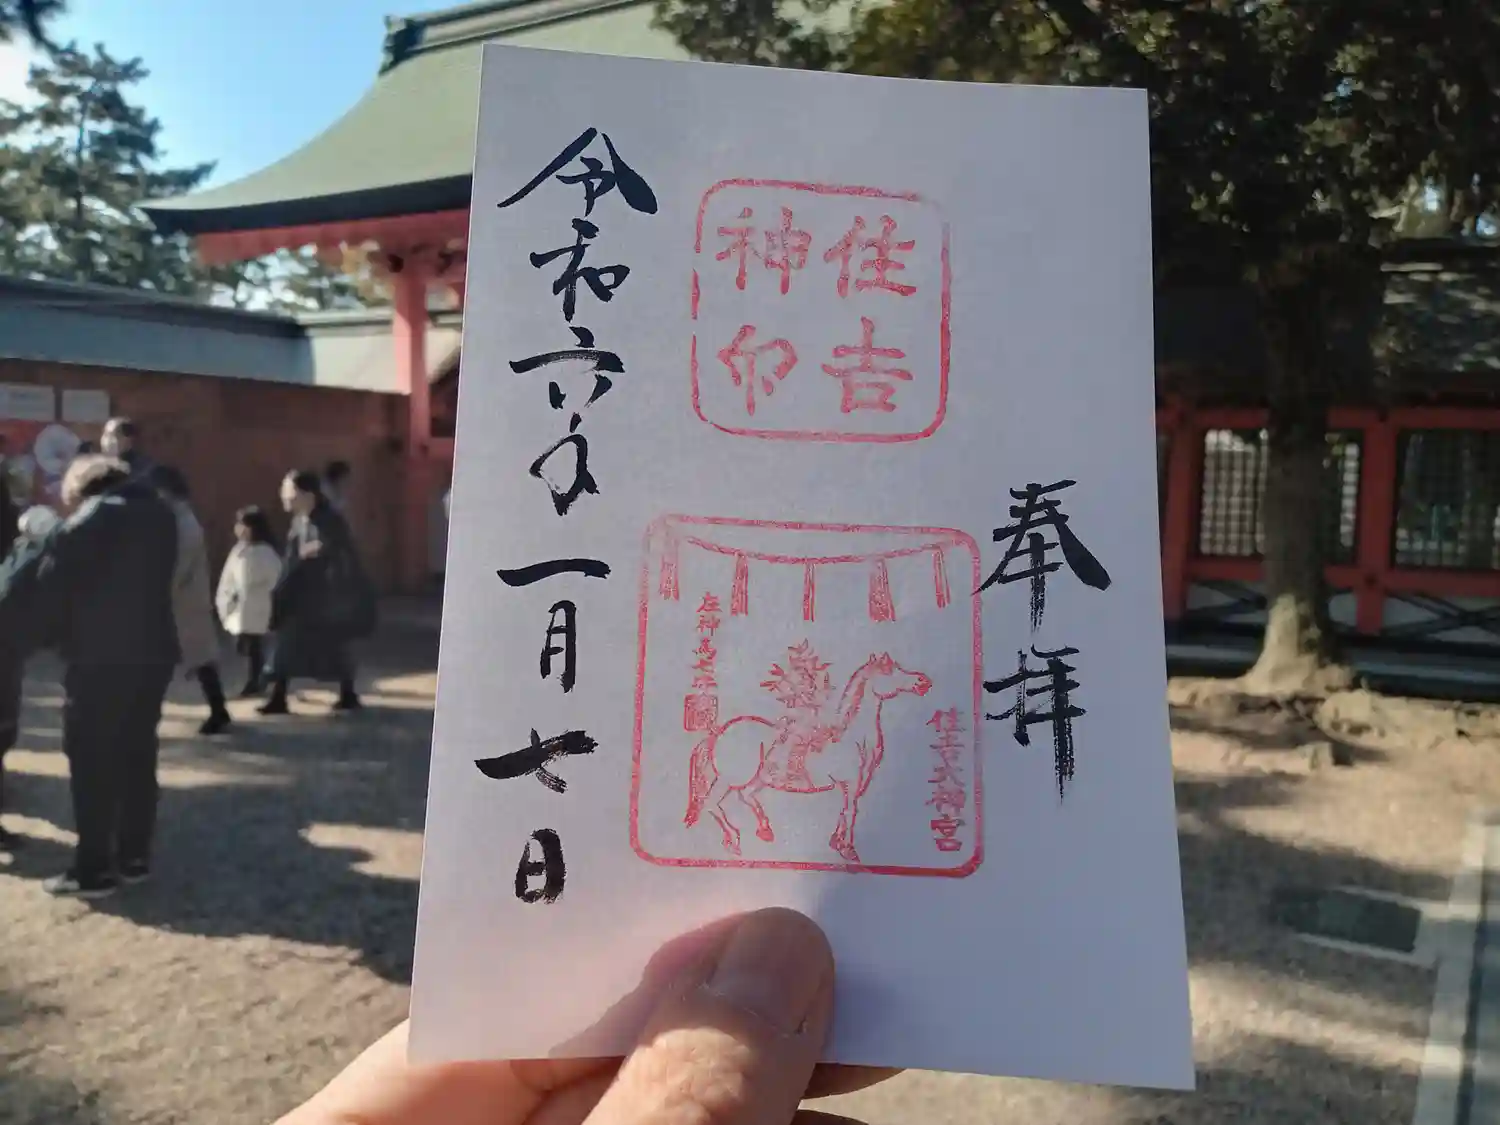 奉拝
住吉
神印
住吉大神宮
左神馬七才
令和六年一月七日